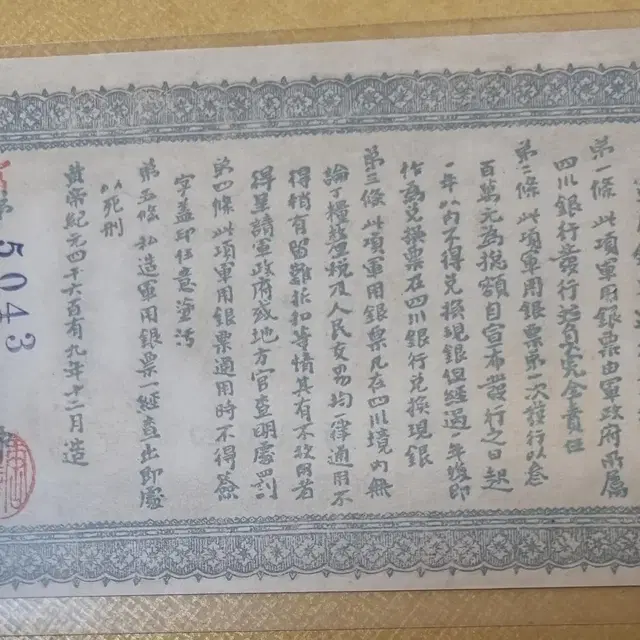 第一條 此項軍用銀票由軍政府所屬
四川銀行發行並負完全責任
第二條 此項軍用銀票第一次發行以叁
百萬元為總額自宣布發行之日起
一年以內不得兌換現銀但經過一年後即
作為兌換票在四川銀行兌換現銀
第三條 此項軍用銀票凡在四川境內無
論丁糧釐稅及人民交易均一律通用不
得稍有留難折扣等情其有不收用者
得呈請軍政府或地方官查明處罰
第四條 此項軍用銀票通用時不得簽
字蓋印任意塗污
第五條 私造軍用銀票一經查出即處
以死刑
黃帝紀元四千六百有九年十二月造
第
5043